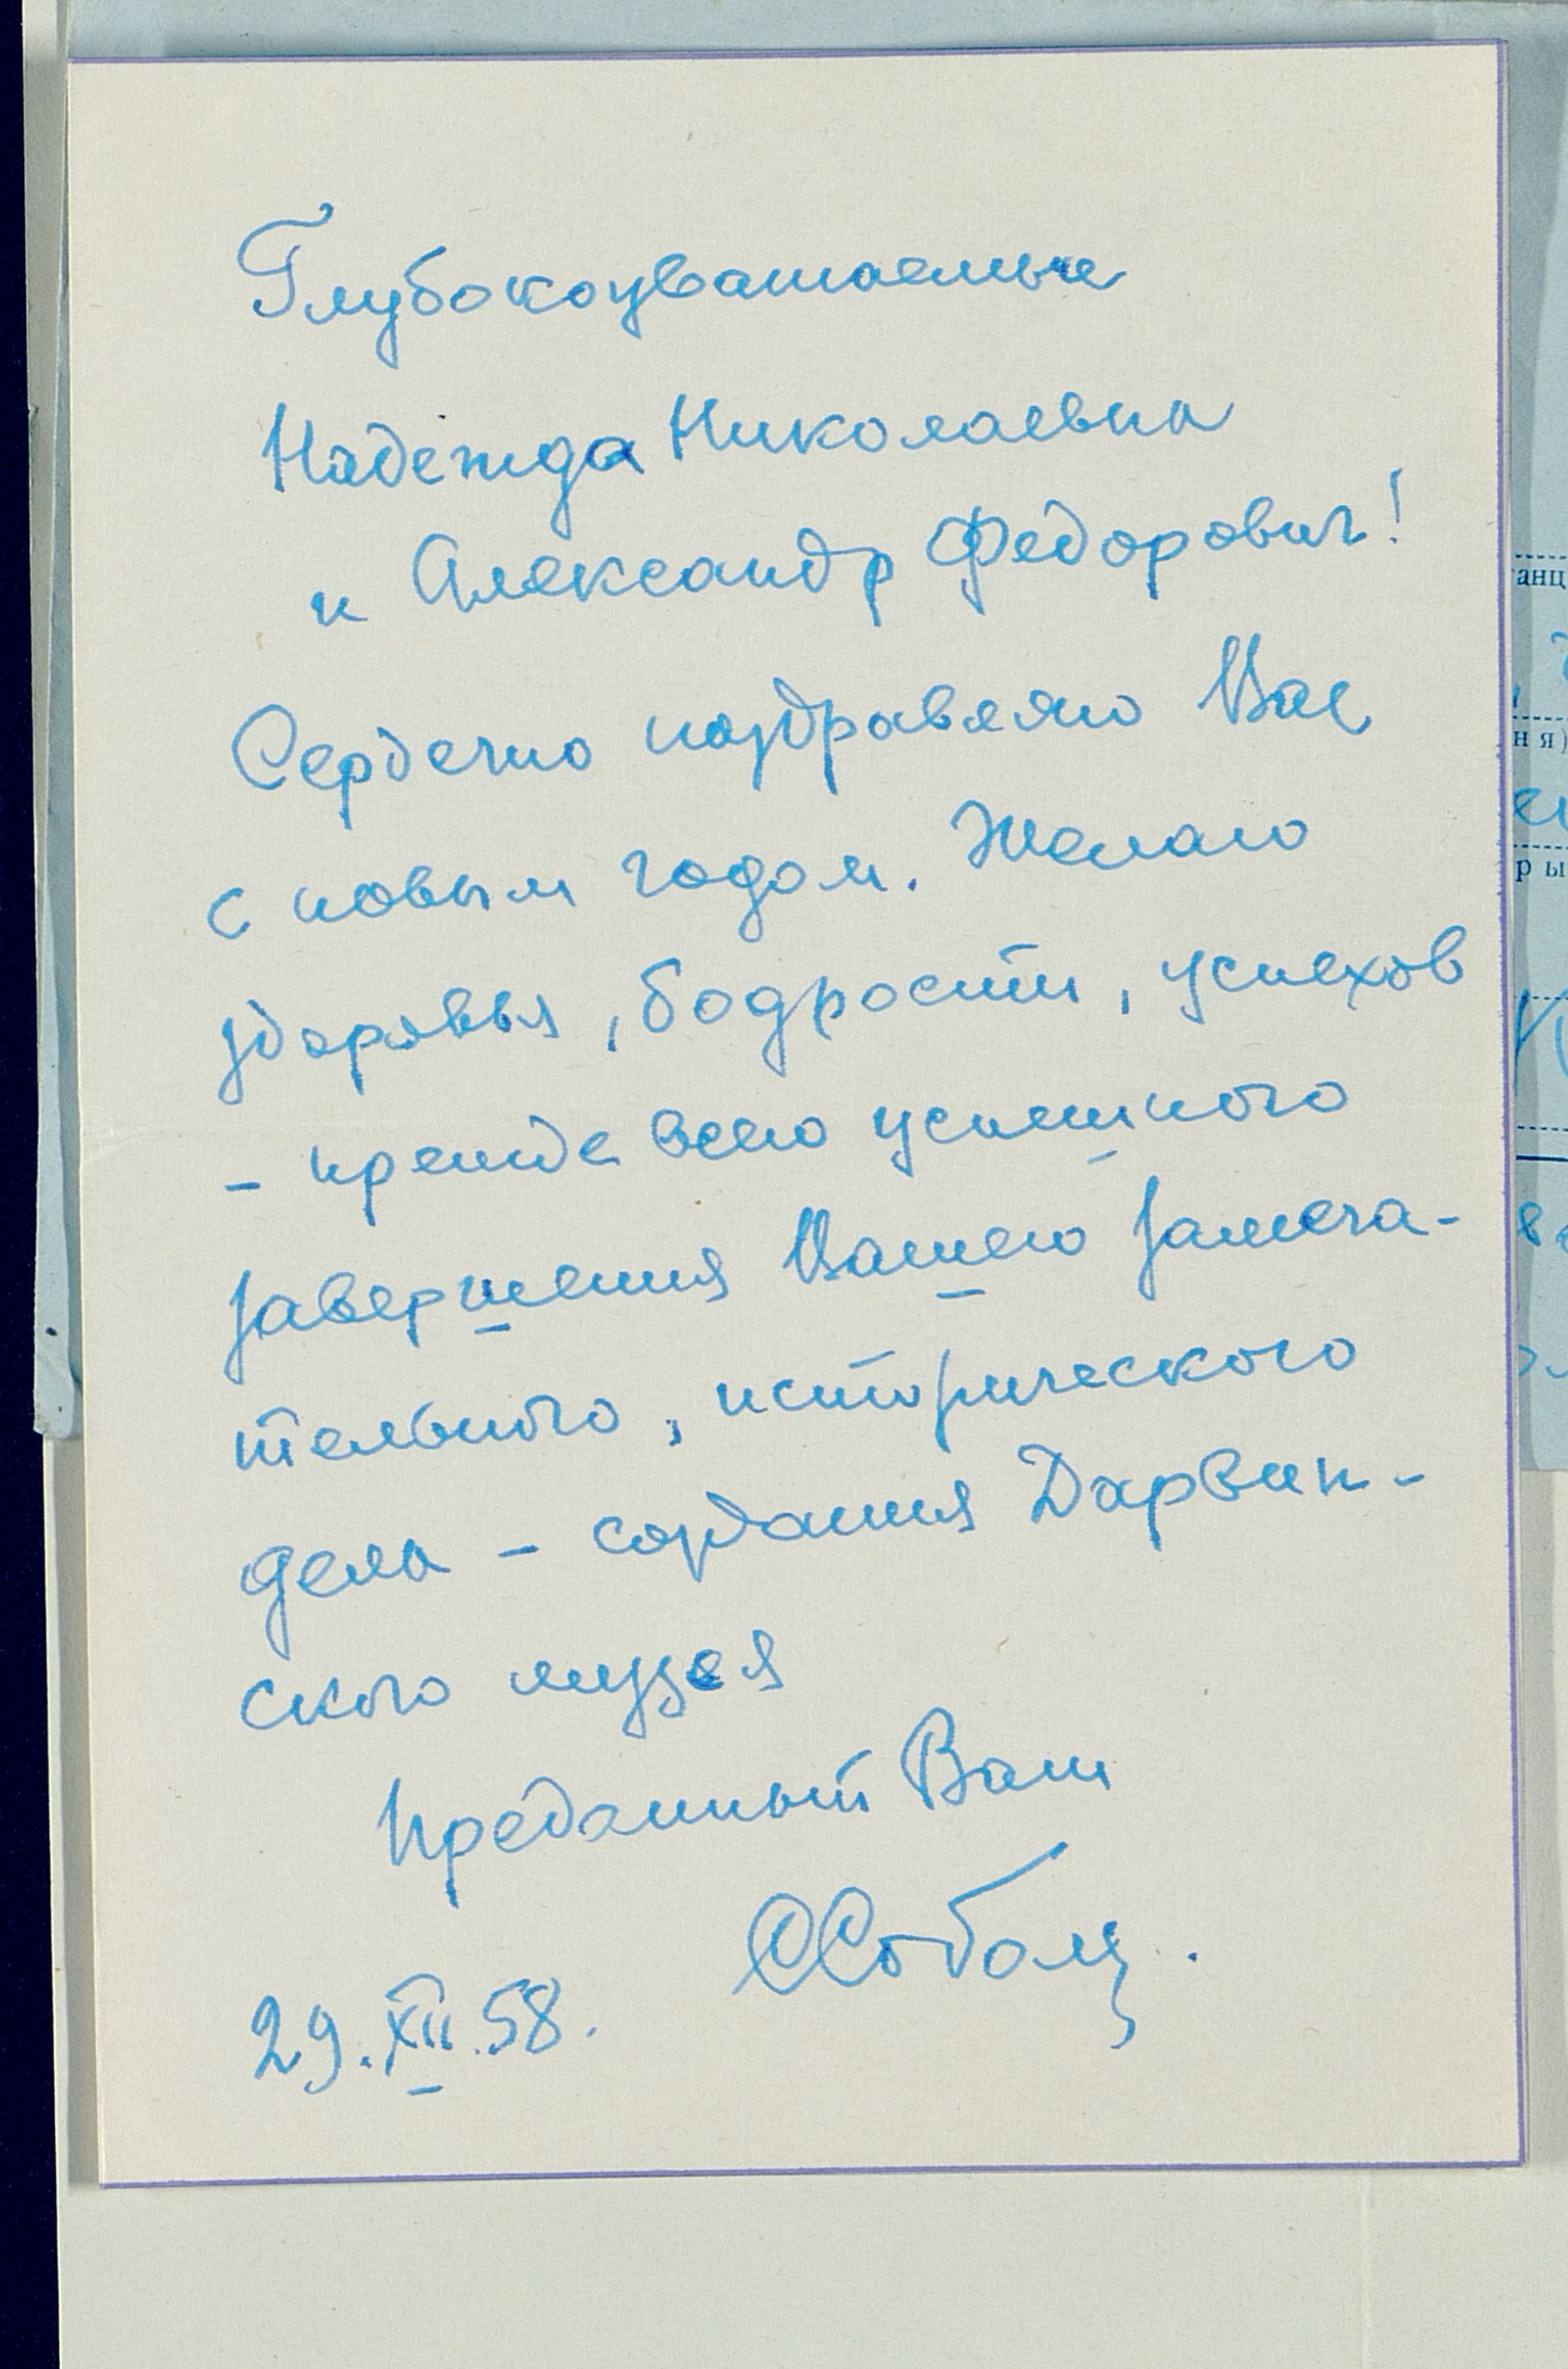 Глубокоуважаемые
Надежда Николаевна
и Александр Федорович!
Сердечно поздравляю Вас
с новым годом. Желаю
здоровья, бодрости, успехов
– прежде всего успешного
завершения Вашего замеча-
тельного, исторического
дела – создания Дарвин-
ского музея
Преданный Вам
ССоболь.
29.XII.58.
анц
ня)
ры